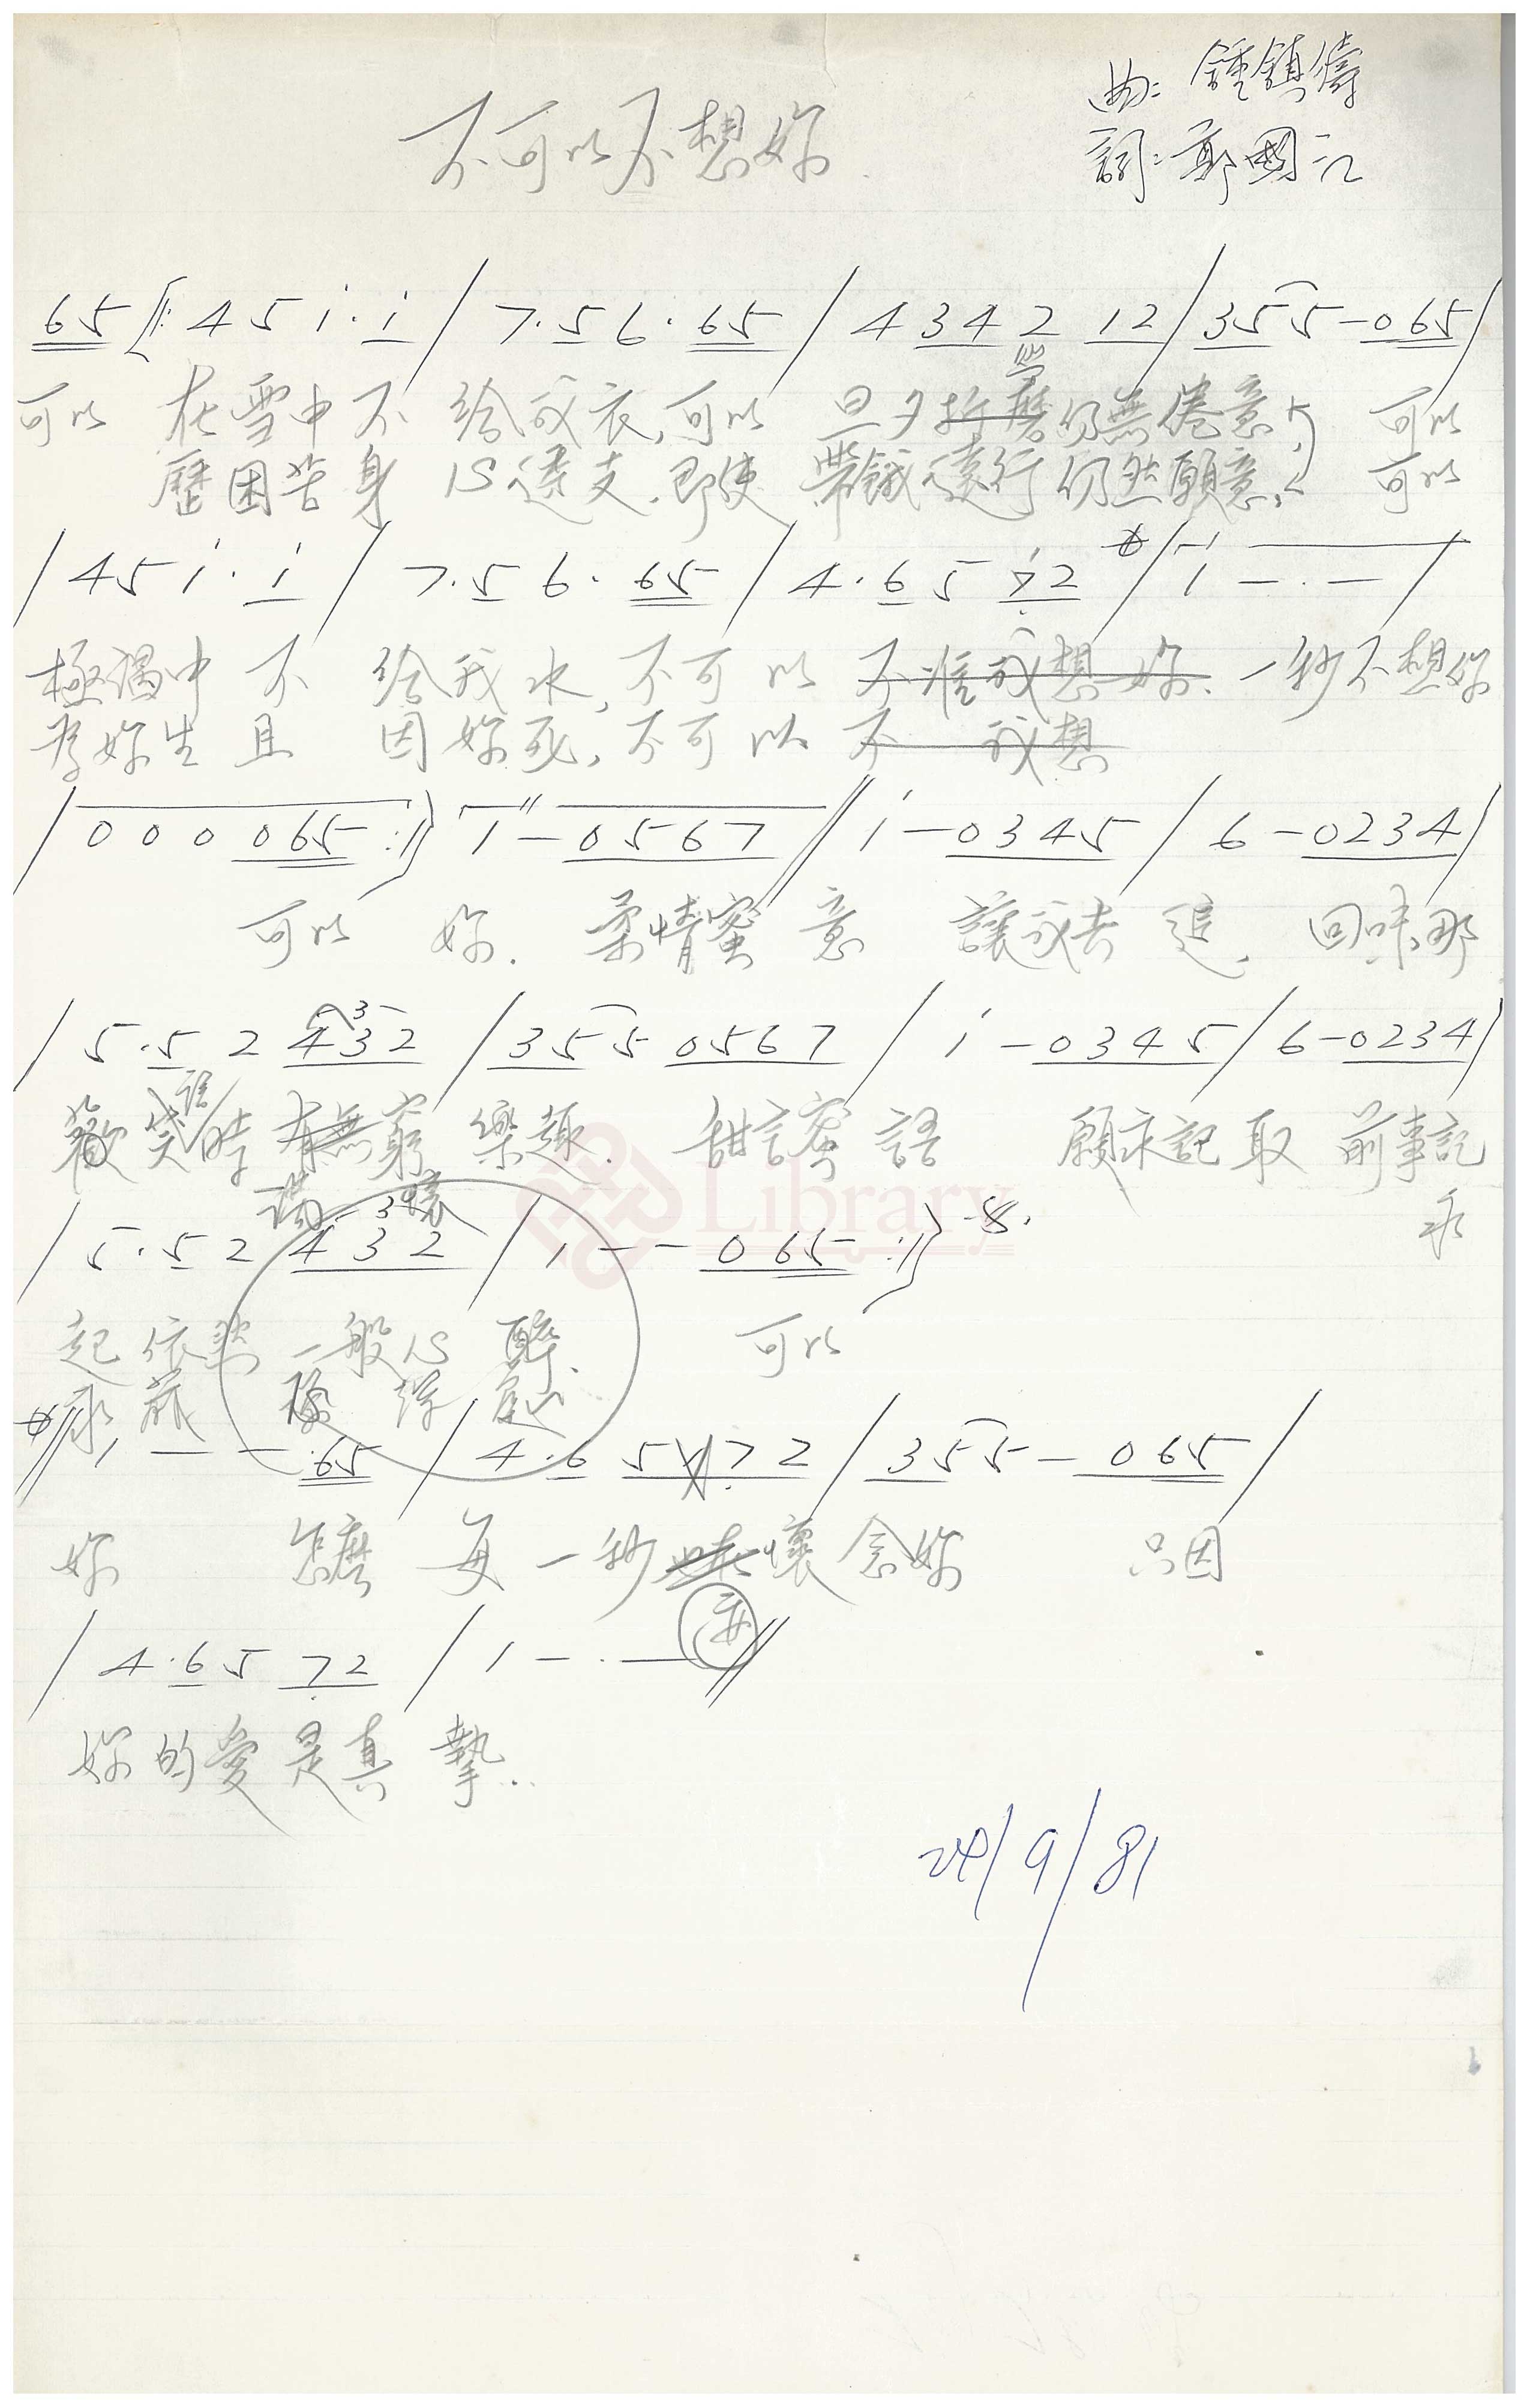 不可以不想妳
曲：鍾鎮濤
詞：鄭國江
65 ‖: 4 5 i · i / 7 · 5 6 · 65 / 4 3 4 2 12 / 3 5 5 - 0 65 /
可以 在雪中不 給我衣,可以 旦夕折磨仍無倦意, 可以
歷困苦身 心透支,即使 帶餓遠行仍然願意, 可以
/ 4 5 i · i / 7 · 5 6 · 65 / 4 · 6 5 72 / 1 - · - /
極渴中 不 給我水,不可以 不准我想妳. 一秒不想妳
為妳生且 因妳死,不可以 不 我想
/ 0 0 0 065 :‖ 1 - 0567 // i - 0345 / 6 - 0234 /
可以 妳. 柔情蜜意 讓我去追. 回味那
/ 5 · 5 2 432 / 3 5 5 0567 / i - 0345 / 6 - 0234 /
歡笑時有無窮樂趣. 甜言蜜語 願永記取 前事記
語
永
/ 5 · 5 2 432 / 1 - - 065 :‖
起依然一般心醉. 可以
// 1 - - 65 / 4 · 6 5 72 / 3 5 5 - 0 65 /
妳 怎麼 每一秒 懷念妳 只因
/ 4 · 6 5 72 / 1 - · - //
妳的愛是真摯..
24/9/81
Library